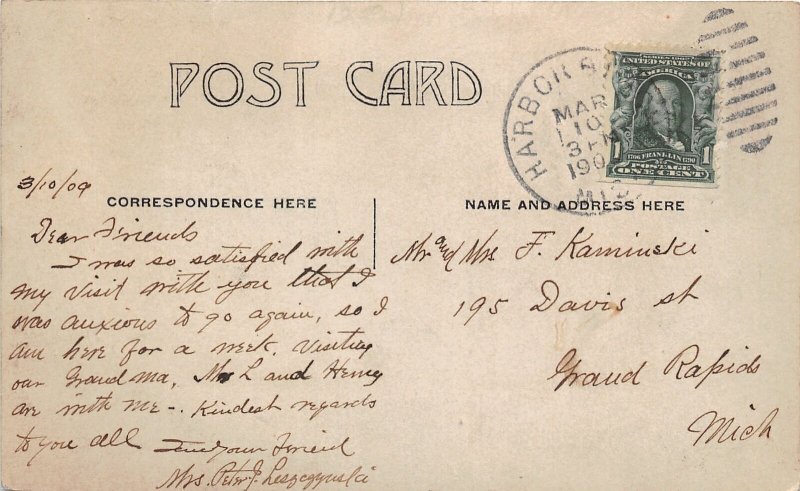 POST CARD
HARBOR S
MAR
10
3 PM
190
MICH
SERIES 1902
UNITED STATES OF
AMERICA
1706 FRANKLIN 1790
1 POSTAGE 1
ONE CENT
3/10/09
CORRESPONDENCE HERE
NAME AND ADDRESS HERE
Dear Friends
I was so satisfied with
my visit with you that I
was auxious to go again, so I
am here for a week. Visiting
our Grand ma, Mr L and Henry
are with me -. Kindest regards
to you all
your Friend
Mrs. Peter J.
Mr and Mrs F. Kaminski
195 Davis st
Grand Rapids
Mich